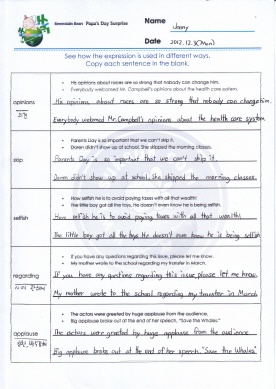 Greensleeves Bean Papa's Day Surprise
Name Jenny
Date 2012.12.3(Mon)
See how the expression is used in different ways.
Copy each sentence in the blank.
• His opinions about races are so strong that nobody can change him.
• Everybody welcomed Mr. Campbell's opinions about the health care system.
opinions
His opinions about races are so strong that nobody can change him.
Everybody welcomed Mr. Campbell's opinions about the health care system
• Parents Day is so important that we can't skip it.
• Doren didn't show up at school. She skipped the morning classes.
skip
Parents Day is so important that we can't skip it.
Doren didn't show up at school. She skipped the morning classes.
• How selfish he is to avoid paying taxes with all that wealth!
• The little boy got all the toys. He doesn't even know he is being selfish.
selfish
How selfish he is to avoid paying taxes with all that wealth!
The little boy got all the toys. He doesn't even know he is being selfish
• If you have any questions regarding this issue, please let me know.
• My mother wrote to the school regarding my transfer in March.
regarding
If you have any questions regarding this issue please let me know.
My mother wrote to the school regarding my transfer in March
• The actors were greeted by huge applause from the audience.
• Big applause broke out at the end of her speech, "Save the Whales."
applause
The actors were greeted by huge applause from the audience
Big applause broke out at the end of her speech, "Save the Whales"